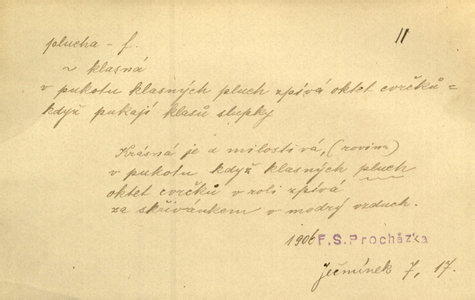 plucha - f.
11
~ klasná
v pukotu klasných pluch zpívá oktet cvrčků =
když pukají klasů slupky
Krásná je a milostivá, (rovina)
v pukotu když klasných pluch
oktet cvrčků v roli zpívá
za skřivánkem v modrý vzduch.
1906 F. S. Procházka
Ječmínek 7, 17.